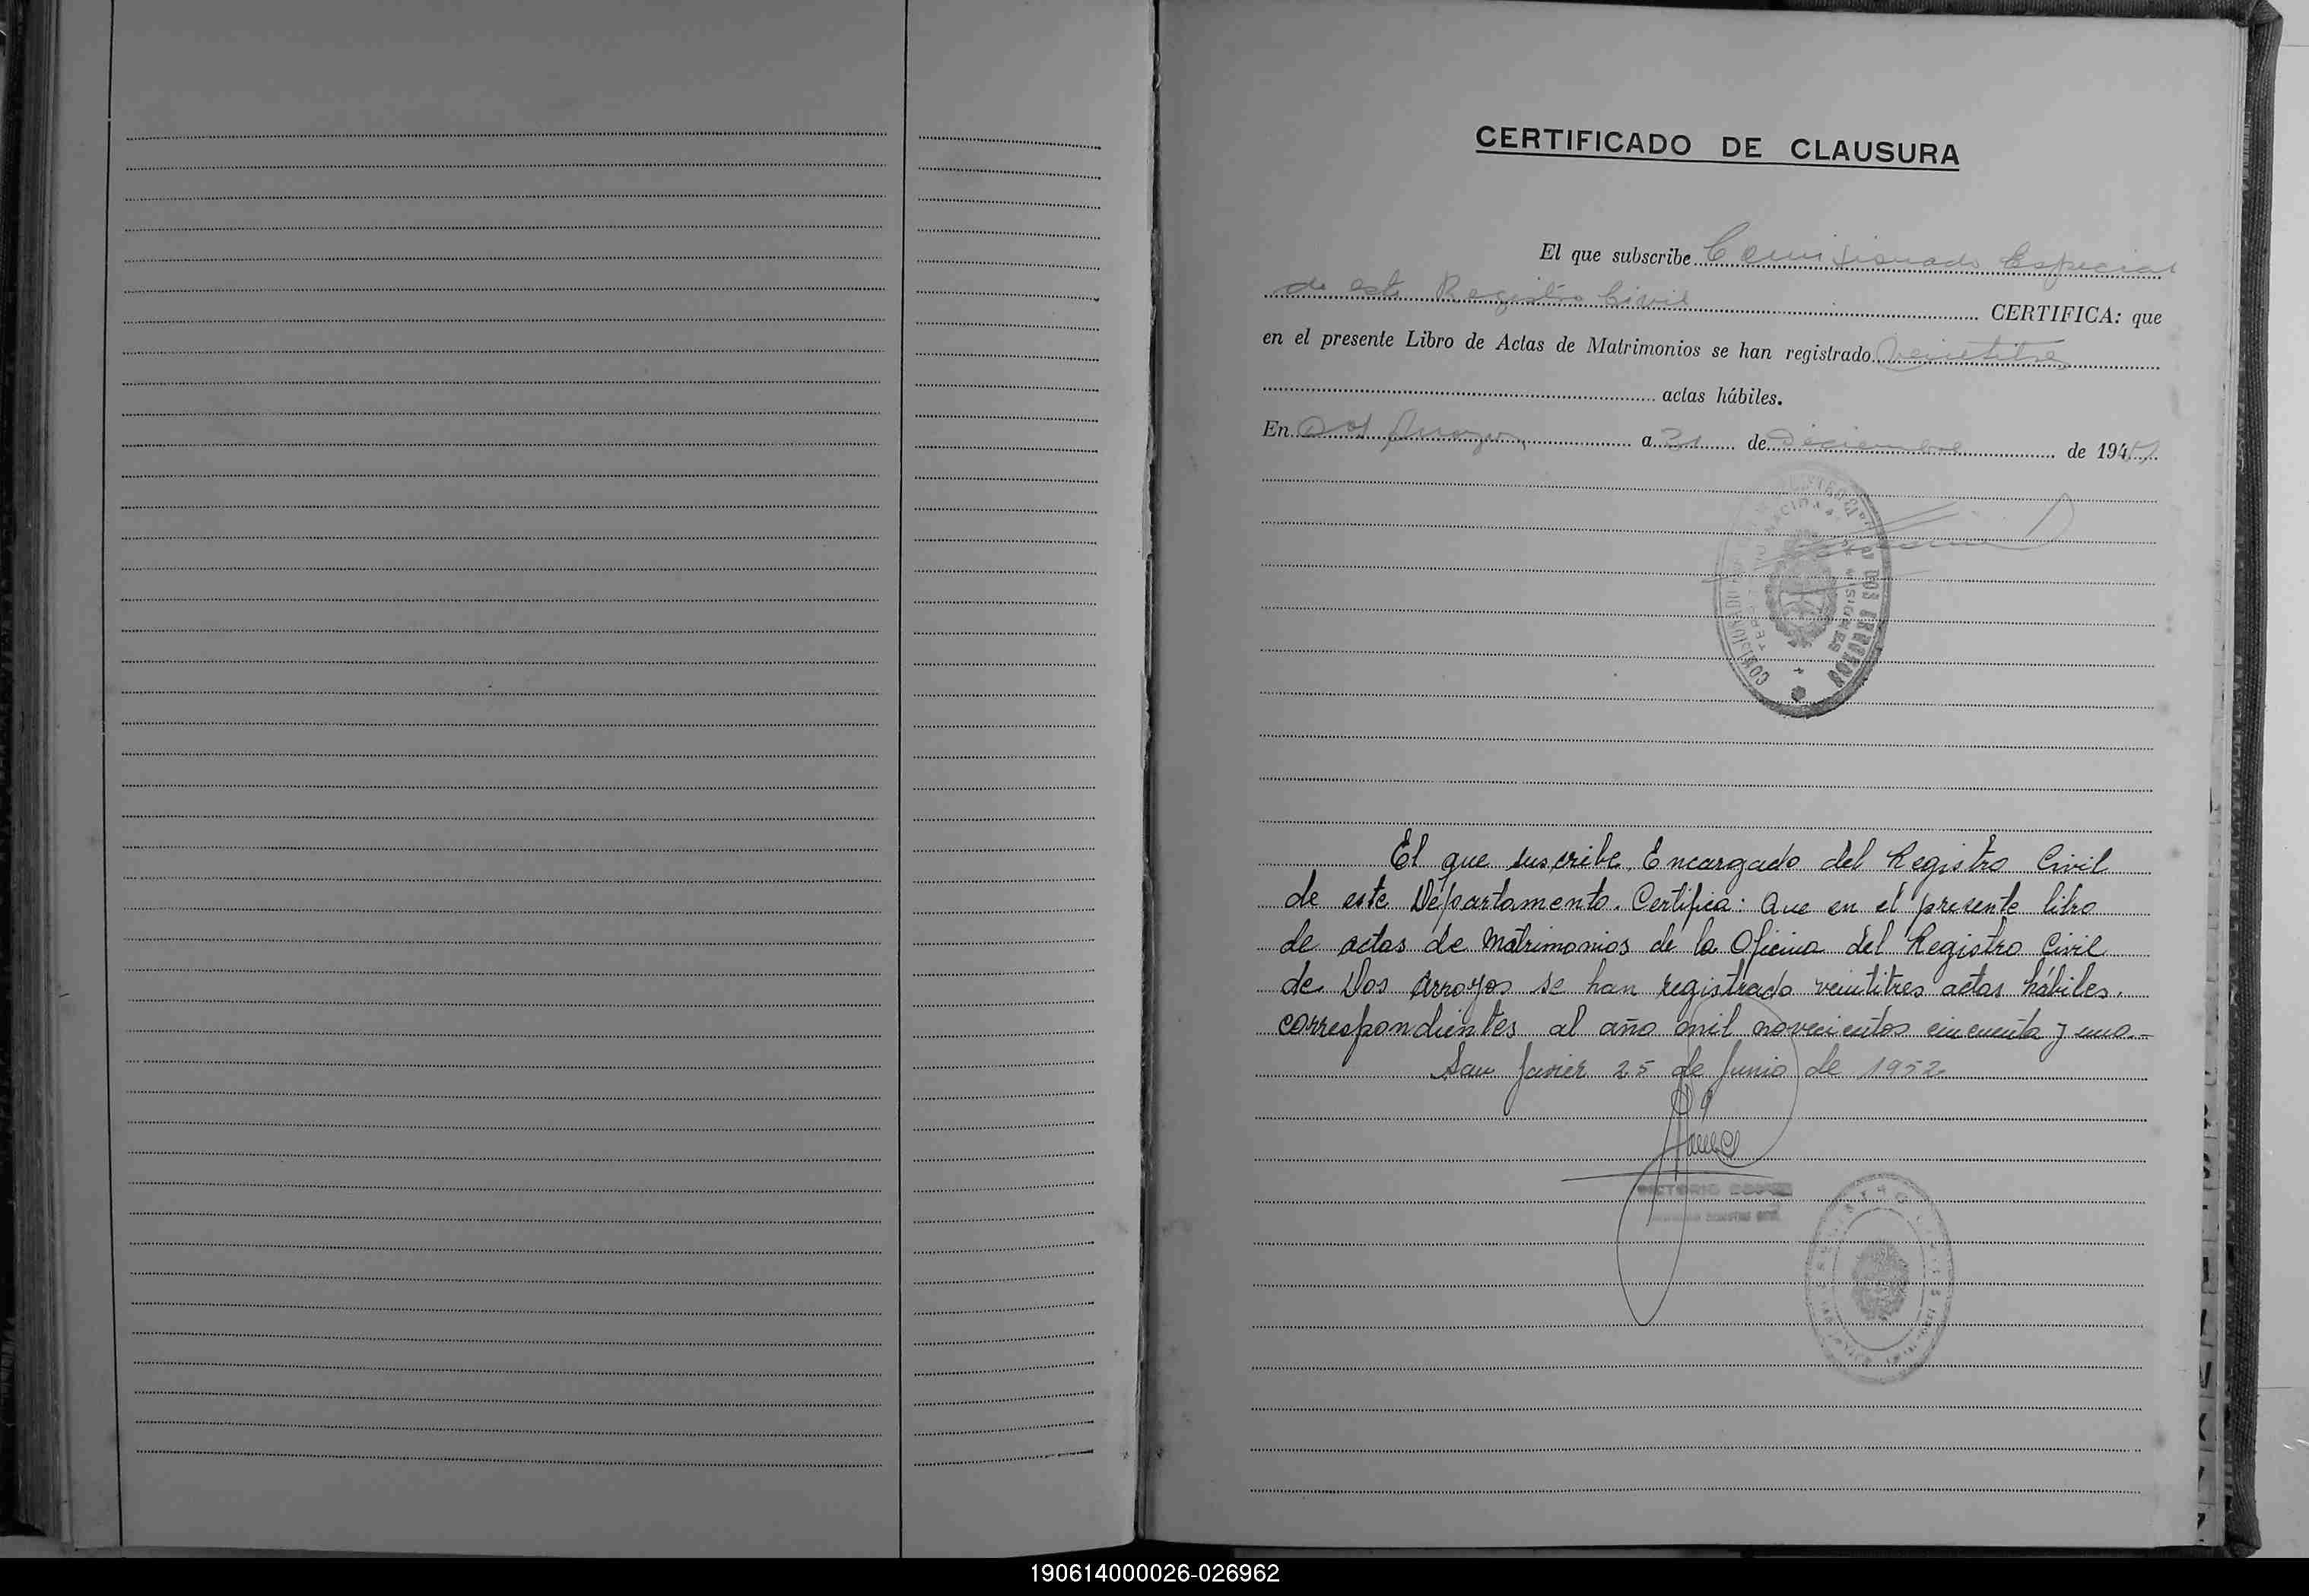 CERTIFICADO DE CLAUSURA
El que subscribe Comisionado Especial
de este Registro Civil CERTIFICA: que
en el presente Libro de Actas de Matrimonios se han registrado veintitres
actas hábiles.
En Dos Arroyos, a 31 de Diciembre de 1951
DOS ARROYOS
MISIONES
El que suscribe, Encargado del Registro Civil
de este Departamento. Certifica: Que en el presente libro
de actas de Matrimonios de la Oficina del Registro Civil
de Dos Arroyos se han registrado veintitres actas hábiles.
correspondientes al año mil novecientos cincuenta y uno.-
San Javier 25 de Junio de 1952
190614000026-026962